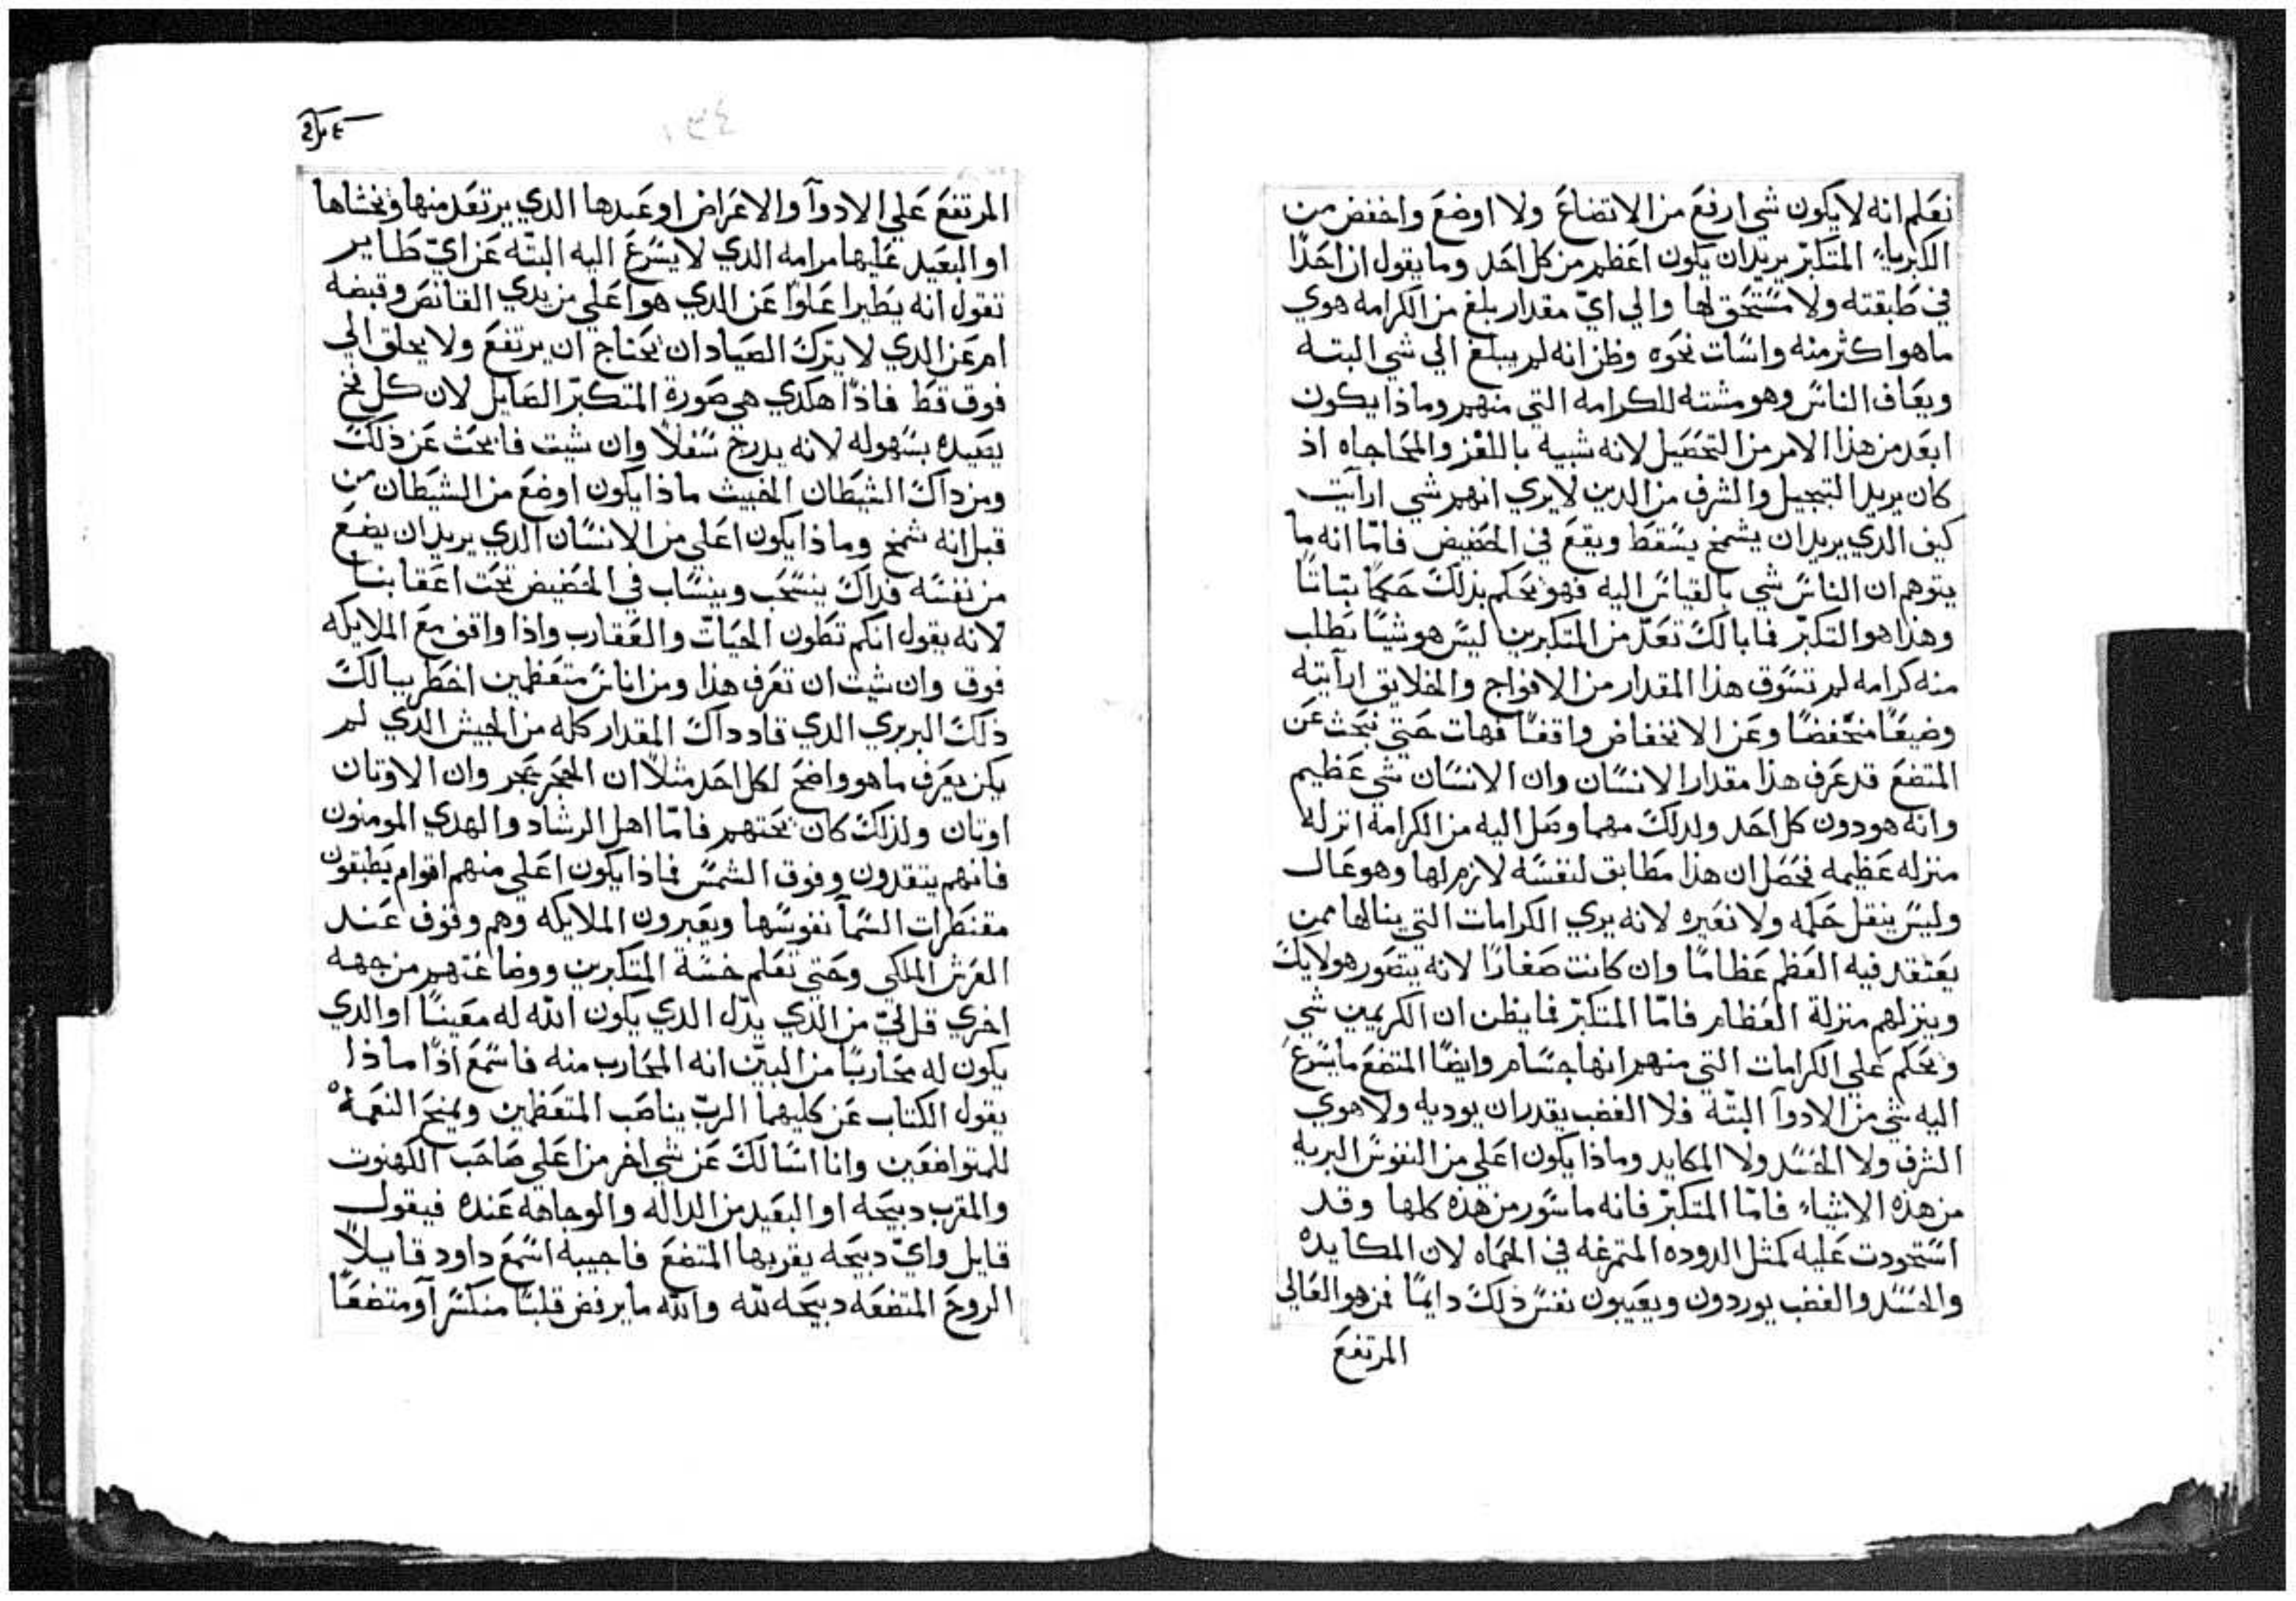 نعلم انه لا يكون شي ارفع من الاتضاع ولا اوضع واخفض من
الكبرياء المتكبّر يريد ان يكون اعظم من كل احد وما يقول ان احدًا
في طبقته ولا مستحق لها والي ايّ مقدار بلغ من الكرامه هوي
ما هو اكثر منه وانساب نحوه وظن انه لم يبلغ الي شي البته
ويعاف الناس وهو مشته للكرامه التي منهم وماذا يكون
ابعد من هذا الامر من التحصيل لانه شبيه باللغز والمحاجاه اذ
كان يريد التبجيل والشرف من الدين لا يري انهم شي ارايت
كيف الدي يريد ان يشمخ يسقط ويقع في الحضيض فامّا انه ما
يتوهم ان الناس شي بالقياس اليه فهو يحكم بذلك حكمًا بتاتًا
وهذا هو التكبّر فما بالك تعدّ من المتكبرين ليس هو شيًا يطلب
منه كرامه لم تسوق هذا المقدار من الافواج والخلايق ارآيته
وضيعًا منخفضًا وعن الانخفاض واقفًا فهات حتي نبحث عن
المتضع قد عرف هذا مقدار الانسان وان الانسان شي عظيم
وانه هو دون كل احد ولدلك مهما وصل اليه من الكرامه انزله
منزله عظيمه فحصل ان هذا مطابق لنفسه لازم لها وهو عال
وليس ينقل حكمه ولا نغيره لانه يري الكرامات التي ينالها ممن
يعتقد فيه العظم عظامًا وان كانت صغارًا لانه يتصور هولايك
وينزلهم منزلة العظام فامّا المتكبّر فما يظن ان الكريمين شي
ويحكم علي الكرامات التي منهم انها جسام وايضًا المتضع ما يسرع
اليه شي من الادوآ البتّه فلا الغضب يقدر ان يوديه ولا هوي
الشرف ولا الحسد ولا المكايد وماذا يكون اعلي من النفوس البريه
من هذه الاشياء فامّا المتكبّر فانه ماسور من هذه كلها وقد
استحودت عليه كمثل الدوده المتمرغه في الحماه لان المكايده
والحسد والغضب يوردون ويعيبون نفس ذلك دايمًا فمن هو العالي
المرتفع
المرتفع علي الادوآ والاعراض او عبدها الدي يرتعد منها ويخشاها
او البعيد عليها مرامه الدي لا يسرع اليه البتّه عن ايّ طاير
تقول انه يطير اعلوًا عن الدي هو اعلي من يدي القانص وقبضه
ام عن الدي لا يترك الصياد ان يحتاج ان يرتفع ولا يحلق الي
فوق قط فاذًا هكدي هي صورة المتكبّر الصايل لان كل فخ
يصيده بسهوله لانه يدرج سفلاً وان شيت فابحث عن ذلك
ومن داك الشيطان الخبيث ماذا يكون اوضع من الشيطان من
قبل انه شمخ وماذا يكون اعلي من الانسان الدي يريد ان يضع
من نفسه فداك ينسحب وينساب في الحضيض تحت اعقابنا
لانه يقول انكم تطون الحيّات والعقارب واذا واقف مع الملايكه
فوق وان شيت ان تعرف هذا ومن اناس متعظمين اخطر ببالك
ذلك البربري الدي قاد داك المقدار كله من الجيش الدي لم
يكن يعرف ما هو واضح لكل احد مثلاً ان الحجر حجر وان الاوتان
اوتان ولذلك كان تحتهم فامّا اهل الرشاد والهدي المومنون
فانهم يتقدون وفوق الشمس فماذا يكون اعلي منهم اقوام يطبقون
مقنطرات السمآ نفوسها ويعبرون الملايكه وهم وقوف عند
العرش الملكي وحتي تعلم خسّة المتكبرين ووضاعتهم من جهه
اخري قل ليّ من الدي يدّل الدي يكون الله له معينًا او الدي
يكون له محاربًا من البيّن انه المحارب منه فاسمع اذًا ماذا
يقول الكتاب عن كليهما الربّ يناصب المتعظمين ويمنح النعمة
للمتواضعين وانا اسالك عن شي اخر من اعلي صاحب الكهنوت
والمقرب دبيحه او البعيد من الداله والوجاهه عنده فيقول
قايل وايّ دبيحه يقربها المتضع فاجيبه اسمع داود قايلاً
الروح المتضعه دبيحه للّه واللّه ما يرفض قلبًا منكسرآ ومتضعًا